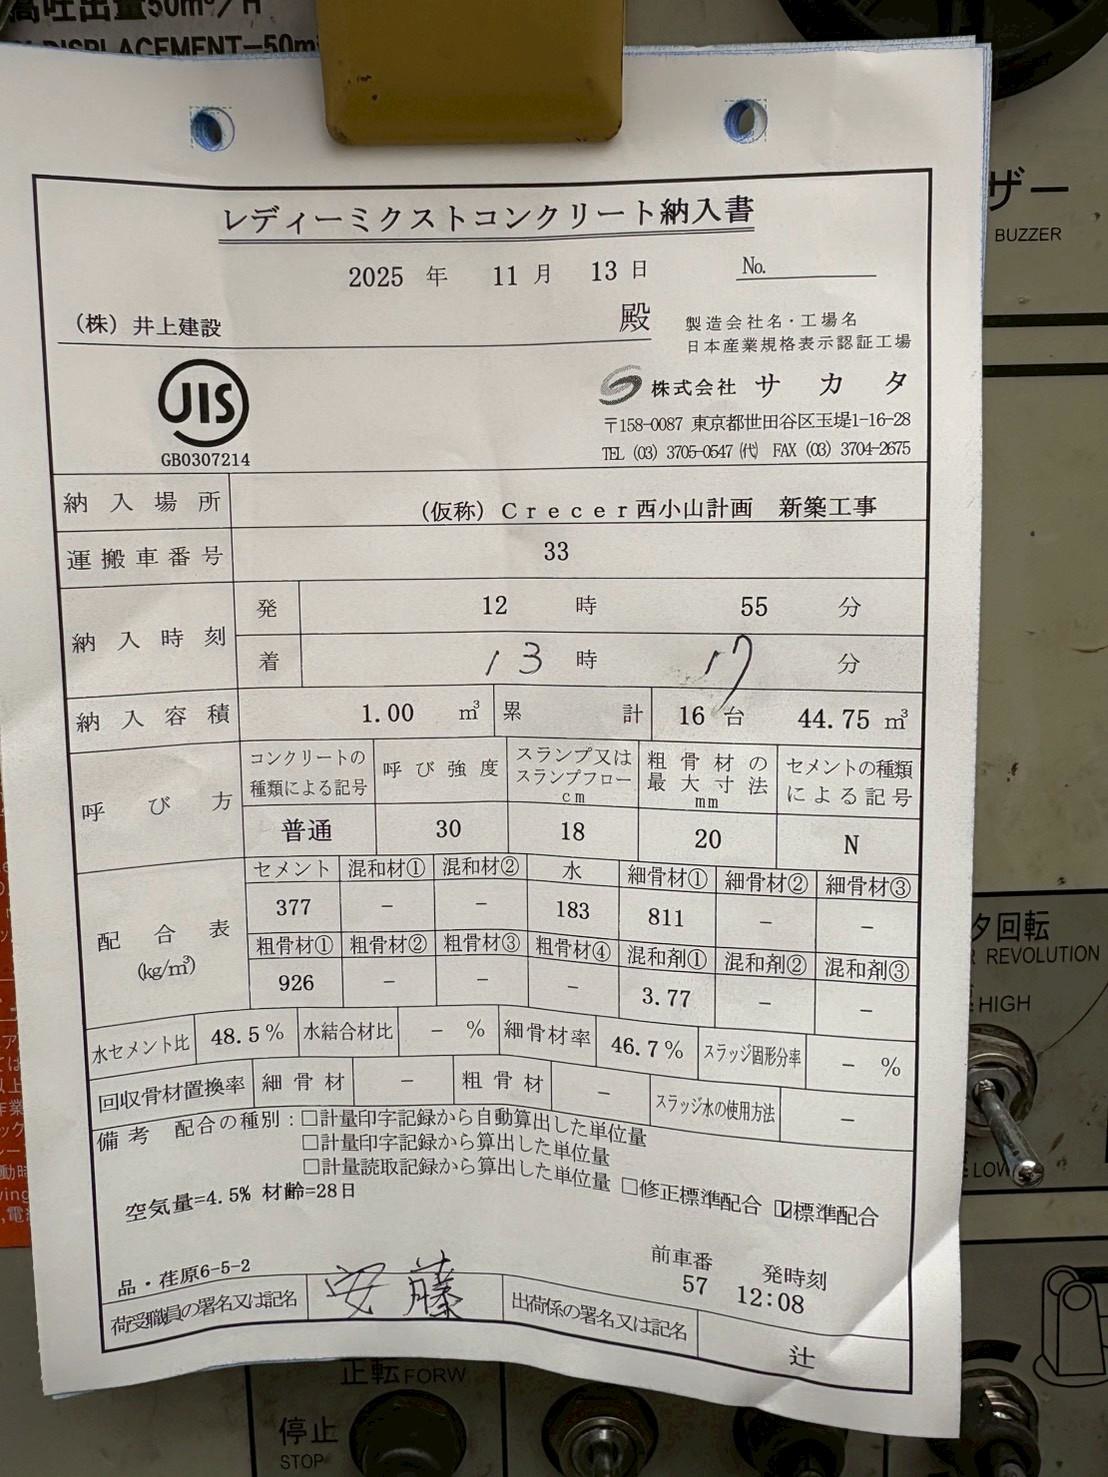 高吐出量50m³/H
DISPLACEMENT-50m³
ザー
BUZZER
レディーミクストコンクリート納入書
2025 年 11 月 13 日 No.
(株) 井上建設 殿
製造会社名・工場名
日本産業規格表示認証工場
JIS
GB0307214
株式会社 サカタ
〒158-0087 東京都世田谷区玉堤1-16-28
TEL (03) 3705-0547 (代) FAX (03) 3704-2675
納入場所 (仮称) Crecer西小山計画 新築工事
運搬車番号 33
納入時刻 発 12 時 55 分
着 13 時 17 分
納入容積 1.00 m³ 累計 16 台 44.75 m³
呼び方 コンクリートの種類による記号 呼び強度 スランプ又はスランプフローcm 粗骨材の最大寸法mm セメントの種類による記号
普通 30 18 20 N
配合表(kg/m³) セメント 混和材① 混和材② 水 細骨材① 細骨材② 細骨材③
377 - - 183 811 - -
粗骨材① 粗骨材② 粗骨材③ 粗骨材④ 混和剤① 混和剤② 混和剤③
926 - - - 3.77 - -
水セメント比 48.5% 水結合材比 - % 細骨材率 46.7% スラッジ固形分率 - %
回収骨材置換率 細骨材 - 粗骨材 - スラッジ水の使用方法 -
備考 配合の種別:□計量印字記録から自動算出した単位量
□計量印字記録から算出した単位量
□計量読取記録から算出した単位量 □修正標準配合 ☑標準配合
空気量=4.5% 材齢=28日
品・荏原6-5-2
前車番 発時刻
57 12:08
荷受職員の署名又は記名 安藤 出荷係の署名又は記名 辻
タ回転
REVOLUTION
HIGH
LOW
正転 FORW
停止
STOP